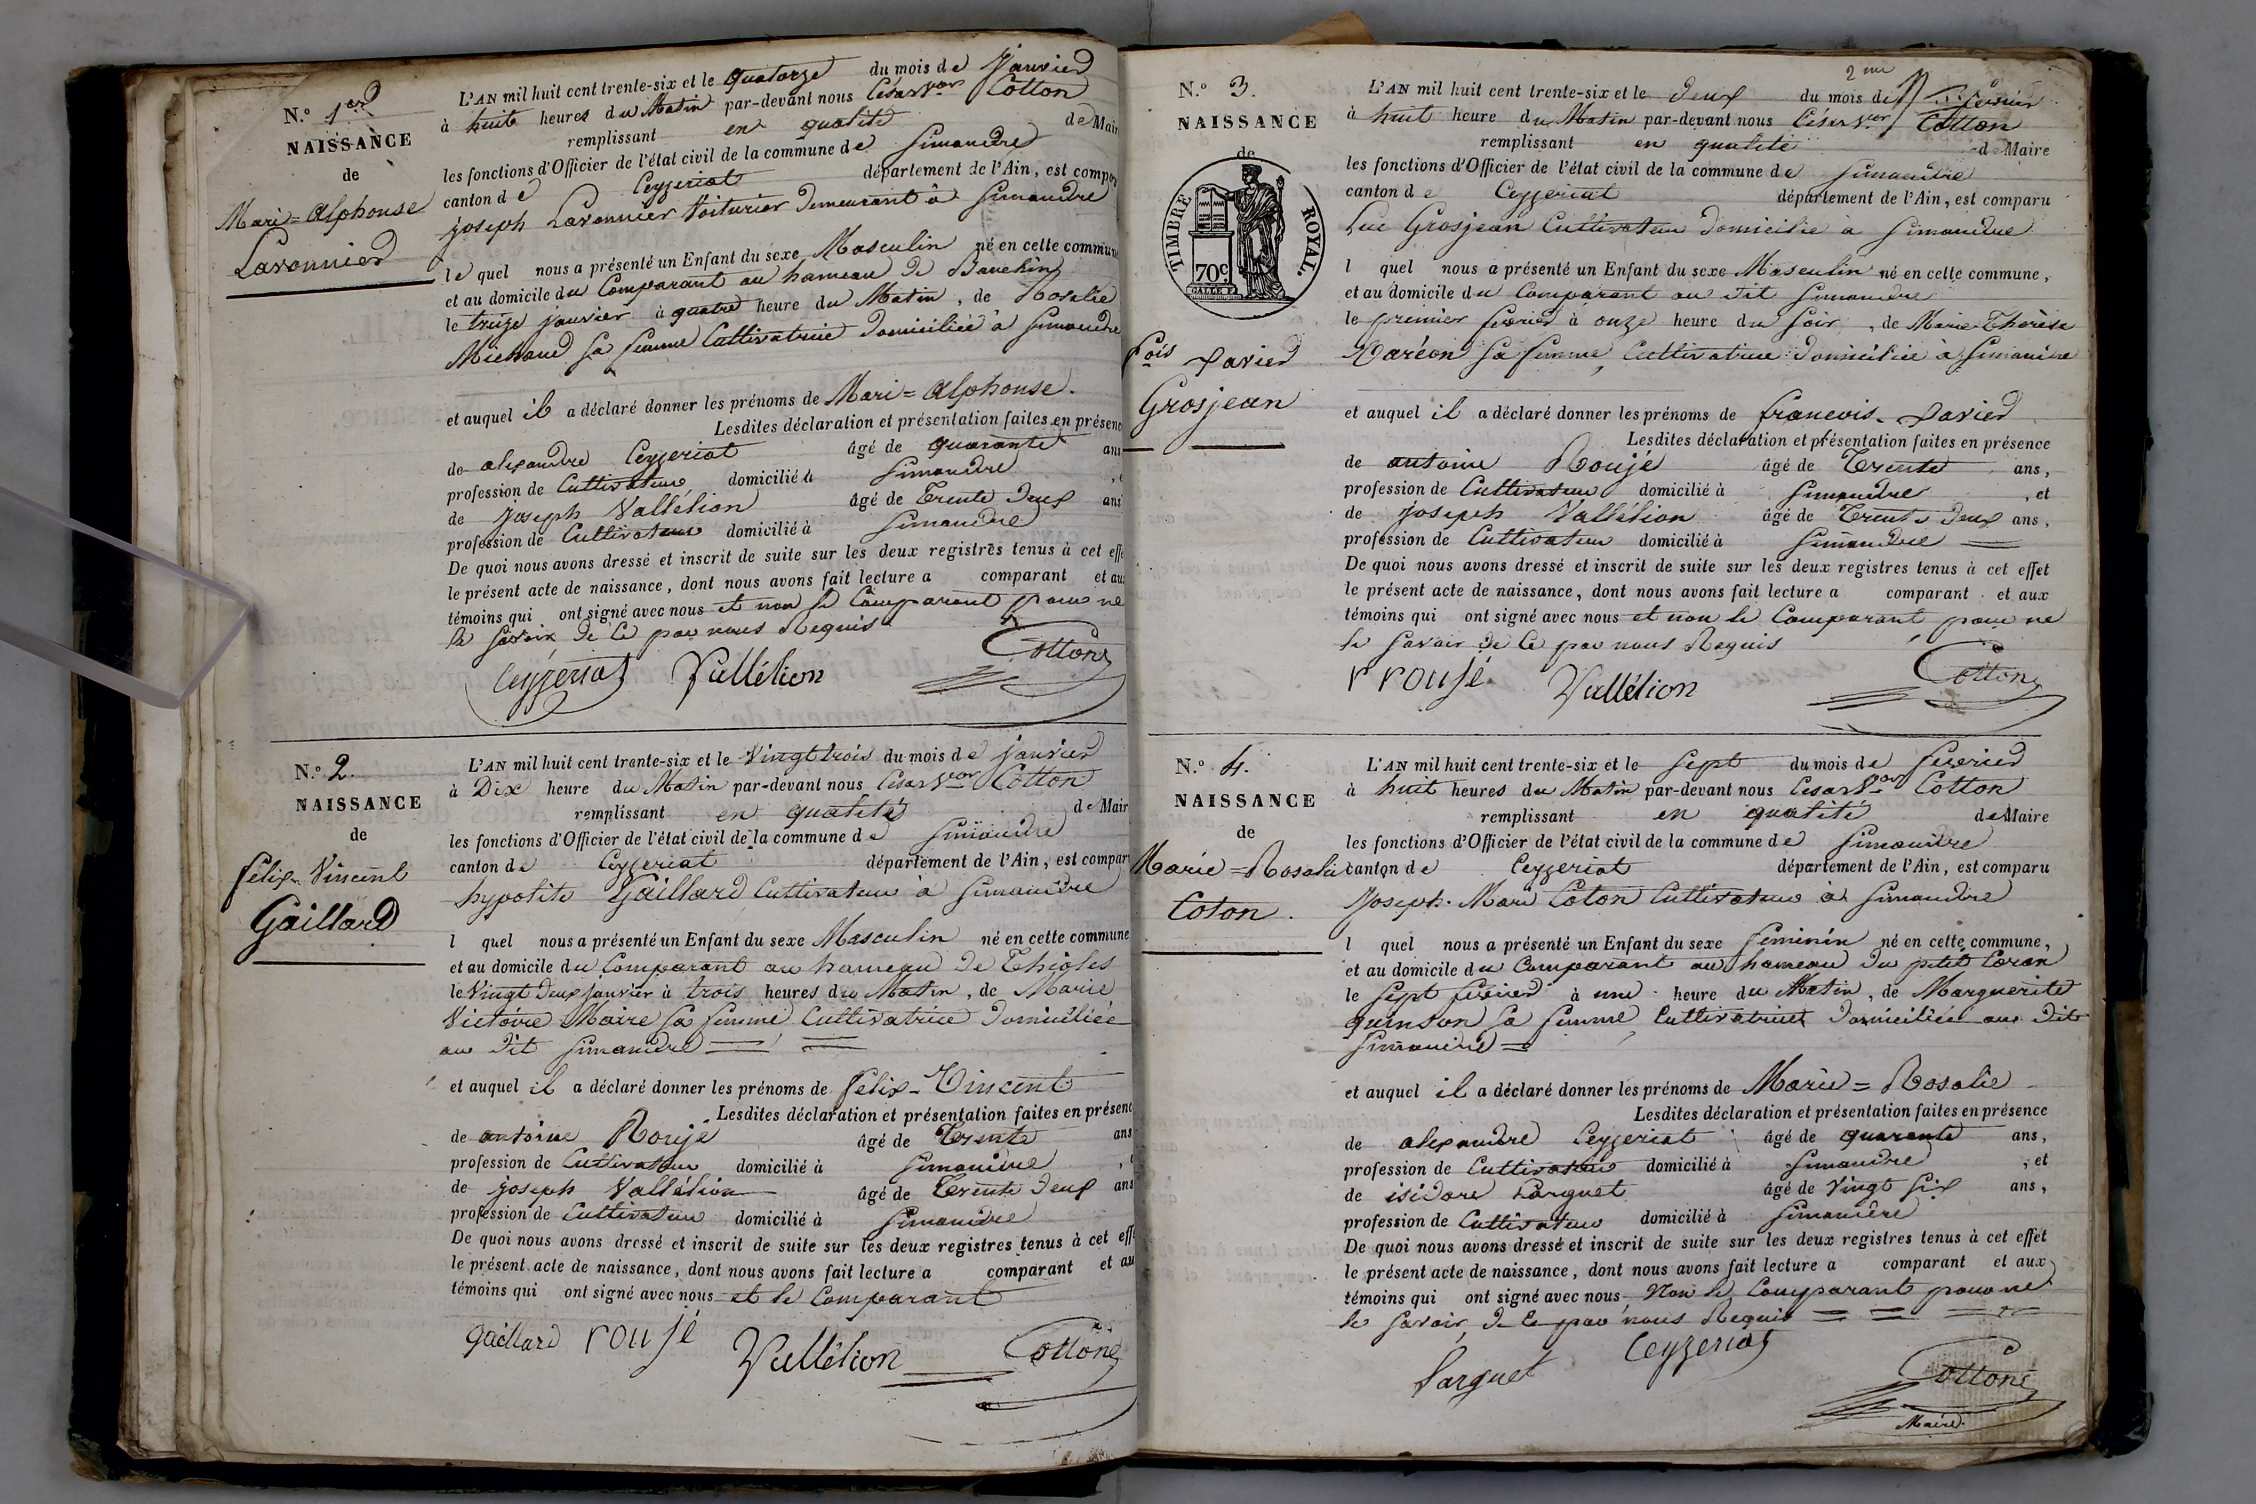 N.º 1er
NAISSANCE
de
Mari=Alphonse
Lavonnier
L'AN mil huit cent trente-six et le quatorze du mois de janvier
à huit heures du Matin par-devant nous César Vor Cotton
remplissant en qualité de Mair
les fonctions d'Officier de l'état civil de la commune de Simandre
canton de Ceyzeriat département de l'Ain, est compar
joseph Lavonnier Voiturier demeurant à Simandre
le quel nous a présenté un Enfant du sexe Masculin né en cette commune
et au domicile du Comparant au hameau de Banchin
le treize janvier à quatre heure du Matin, de Rosalie
Michaud sa femme Cultivatrice domiciliée à Simandre
et auquel il a déclaré donner les prénoms de Mari=Alphonse.
Lesdites déclaration et présentation faites en présenc
de alexandre Ceyzeriat âgé de quarante ans
profession de Cultivateur domicilié à Simandre
de joseph Vallélion âgé de Trente deux ans
profession de Cultivateur domicilié à Simandre
De quoi nous avons dressé et inscrit de suite sur les deux registres tenus à cet effe
le présent acte de naissance, dont nous avons fait lecture a comparant et au
témoins qui ont signé avec nous et non le Comparant pour ne
le savoir de ce par nous Requis
Ceyzeriat Vallélion Cotton
N.º 2.
NAISSANCE
de
félix Vincent
Gaillard
L'AN mil huit cent trente-six et le Vingt trois du mois de janvier
à Dix heure du Matin par-devant nous César Vor Cotton
remplissant en qualité de Mair
les fonctions d'Officier de l'état civil de la commune de Simandre
canton de Ceyzeriat département de l'Ain, est compar
hypolite Gaillard Cultivateur à Simandre
l quel nous a présenté un Enfant du sexe Masculin né en cette commune
et au domicile du Comparant au hameau de Thioles
le Vingt deux janvier à trois heures du Matin, de Marie
Victoire Maire sa femme Cultivatrice domiciliée
au dit Simandre
et auquel il a déclaré donner les prénoms de félix-Vincent
Lesdites déclaration et présentation faites en présenc
de antoine Roujé âgé de Trente ans
profession de Cultivateur domicilié à Simandre
de joseph Vallélion âgé de Trente deux ans
profession de Cultivateur domicilié à Simandre
De quoi nous avons dressé et inscrit de suite sur les deux registres tenus à cet effe
le présent acte de naissance, dont nous avons fait lecture a comparant et au
témoins qui ont signé avec nous et le Comparant
gaillard roujé Vallélion Cotton
N.º 3.
NAISSANCE
de
TIMBRE ROYAL.
70c
fois Xavier
Grosjean
2me
L'AN mil huit cent trente-six et le deux du mois de février
à huit heure du Matin par-devant nous César Vor Cotton
remplissant en qualité d Maire
les fonctions d'Officier de l'état civil de la commune de Simandre
canton de Ceyzeriat département de l'Ain, est comparu
Luc Grosjean Cultivateur domicilié à Simandre
l quel nous a présenté un Enfant du sexe Masculin né en cette commune,
et au domicile du Comparant au dit Simandre
le premier février à onze heure du soir, de Marie Therèse
sa femme, Cultivatrice domiciliée à Simandre
et auquel il a déclaré donner les prénoms de francois-Xavier
Lesdites déclaration et présentation faites en présence
de antoine Roujé âgé de Trente ans,
profession de Cultivateur domicilié à Simandre, et
de joseph Vallélion âgé de Trente deux ans,
profession de Cultivateur domicilié à Simandre
De quoi nous avons dressé et inscrit de suite sur les deux registres tenus à cet effet
le présent acte de naissance, dont nous avons fait lecture a comparant et aux
témoins qui ont signé avec nous et non le Comparant pour ne
le savoir de ce par nous Requis
rouJé Vallélion Cotton
N.º 4.
NAISSANCE
de
Marie=Rosalie
Coton.
L'AN mil huit cent trente-six et le sept du mois de février
à huit heures du Matin par-devant nous César Vor Cotton
remplissant en qualité de Maire
les fonctions d'Officier de l'état civil de la commune de Simandre
canton de Ceyzeriat département de l'Ain, est comparu
Joseph-Mari Coton Cultivateur à Simandre
l quel nous a présenté un Enfant du sexe feminin né en cette commune,
et au domicile du Comparant au hameau du petit Coran
le sept février à une heure du Matin, de Marguerite
quinson sa femme, Cultivatrice domiciliée au dit
Simandre
et auquel il a déclaré donner les prénoms de Marie=Rosalie
Lesdites déclaration et présentation faites en présence
de alexandre Ceyzeriat âgé de quarante ans,
profession de Cultivateur domicilié à Simandre, et
de isidore Farguet âgé de Vingt six ans,
profession de Cultivateur domicilié à Simandre
De quoi nous avons dressé et inscrit de suite sur les deux registres tenus à cet effet
le présent acte de naissance, dont nous avons fait lecture a comparant et aux
témoins qui ont signé avec nous, Non le Comparant pour ne
le savoir, de ce par nous Requis
farguet Ceyzeriat Cotton
Maire